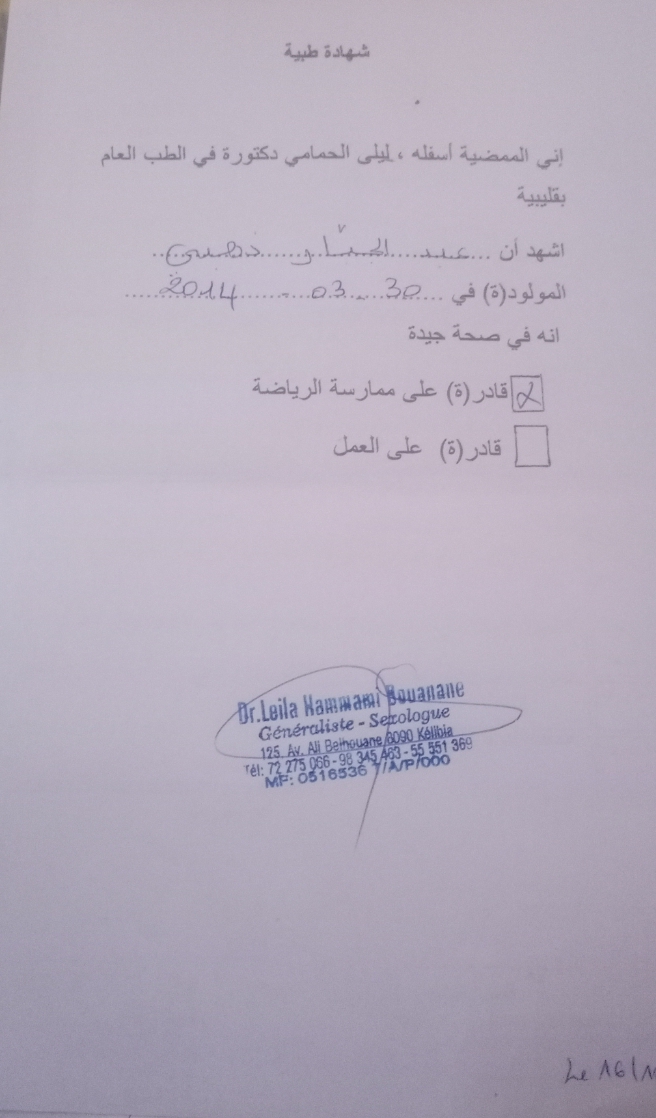 شهادة طبية
إني الممضية أسفله ، ليلى الحمامي دكتورة في الطب العام
بقليبية
اشهد أن ... عبد ...
المولود(ة) في ... 30 - 03 - 2014 ...
انه في صحة جيدة
قادر(ة) على ممارسة الرياضة
قادر(ة) على العمل
Dr.Leila Hammami Bouanane
Généraliste - Sexologue
125, Av. Ali Belhouane 8090 Kélibia
Tél: 72 275 066 - 98 345 463 - 55 551 369
MF: 0516536 /A/P/000
Le 16/